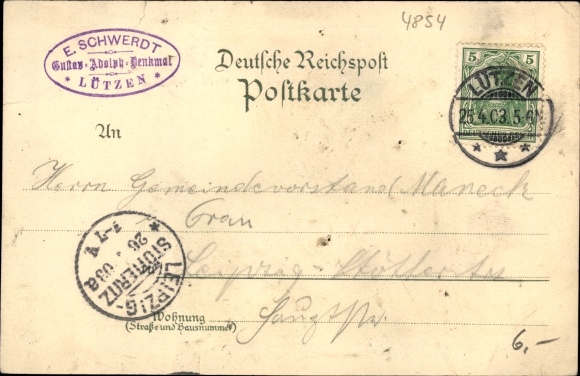 4854
E. SCHWERDT
Gustav-Adolph-Denkmal
* LÜTZEN *
Deutsche Reichspost
Postkarte
5 5
LÜTZEN
25.4.03.5-6N
An
Herrn Gemeindevorstand Maneck
Leipzig-Stötteritz
Hauptstr
LEIPZIG-
STÖTTERITZ
26
03
Wohnung
(Straße und Hausnummer)
6,-